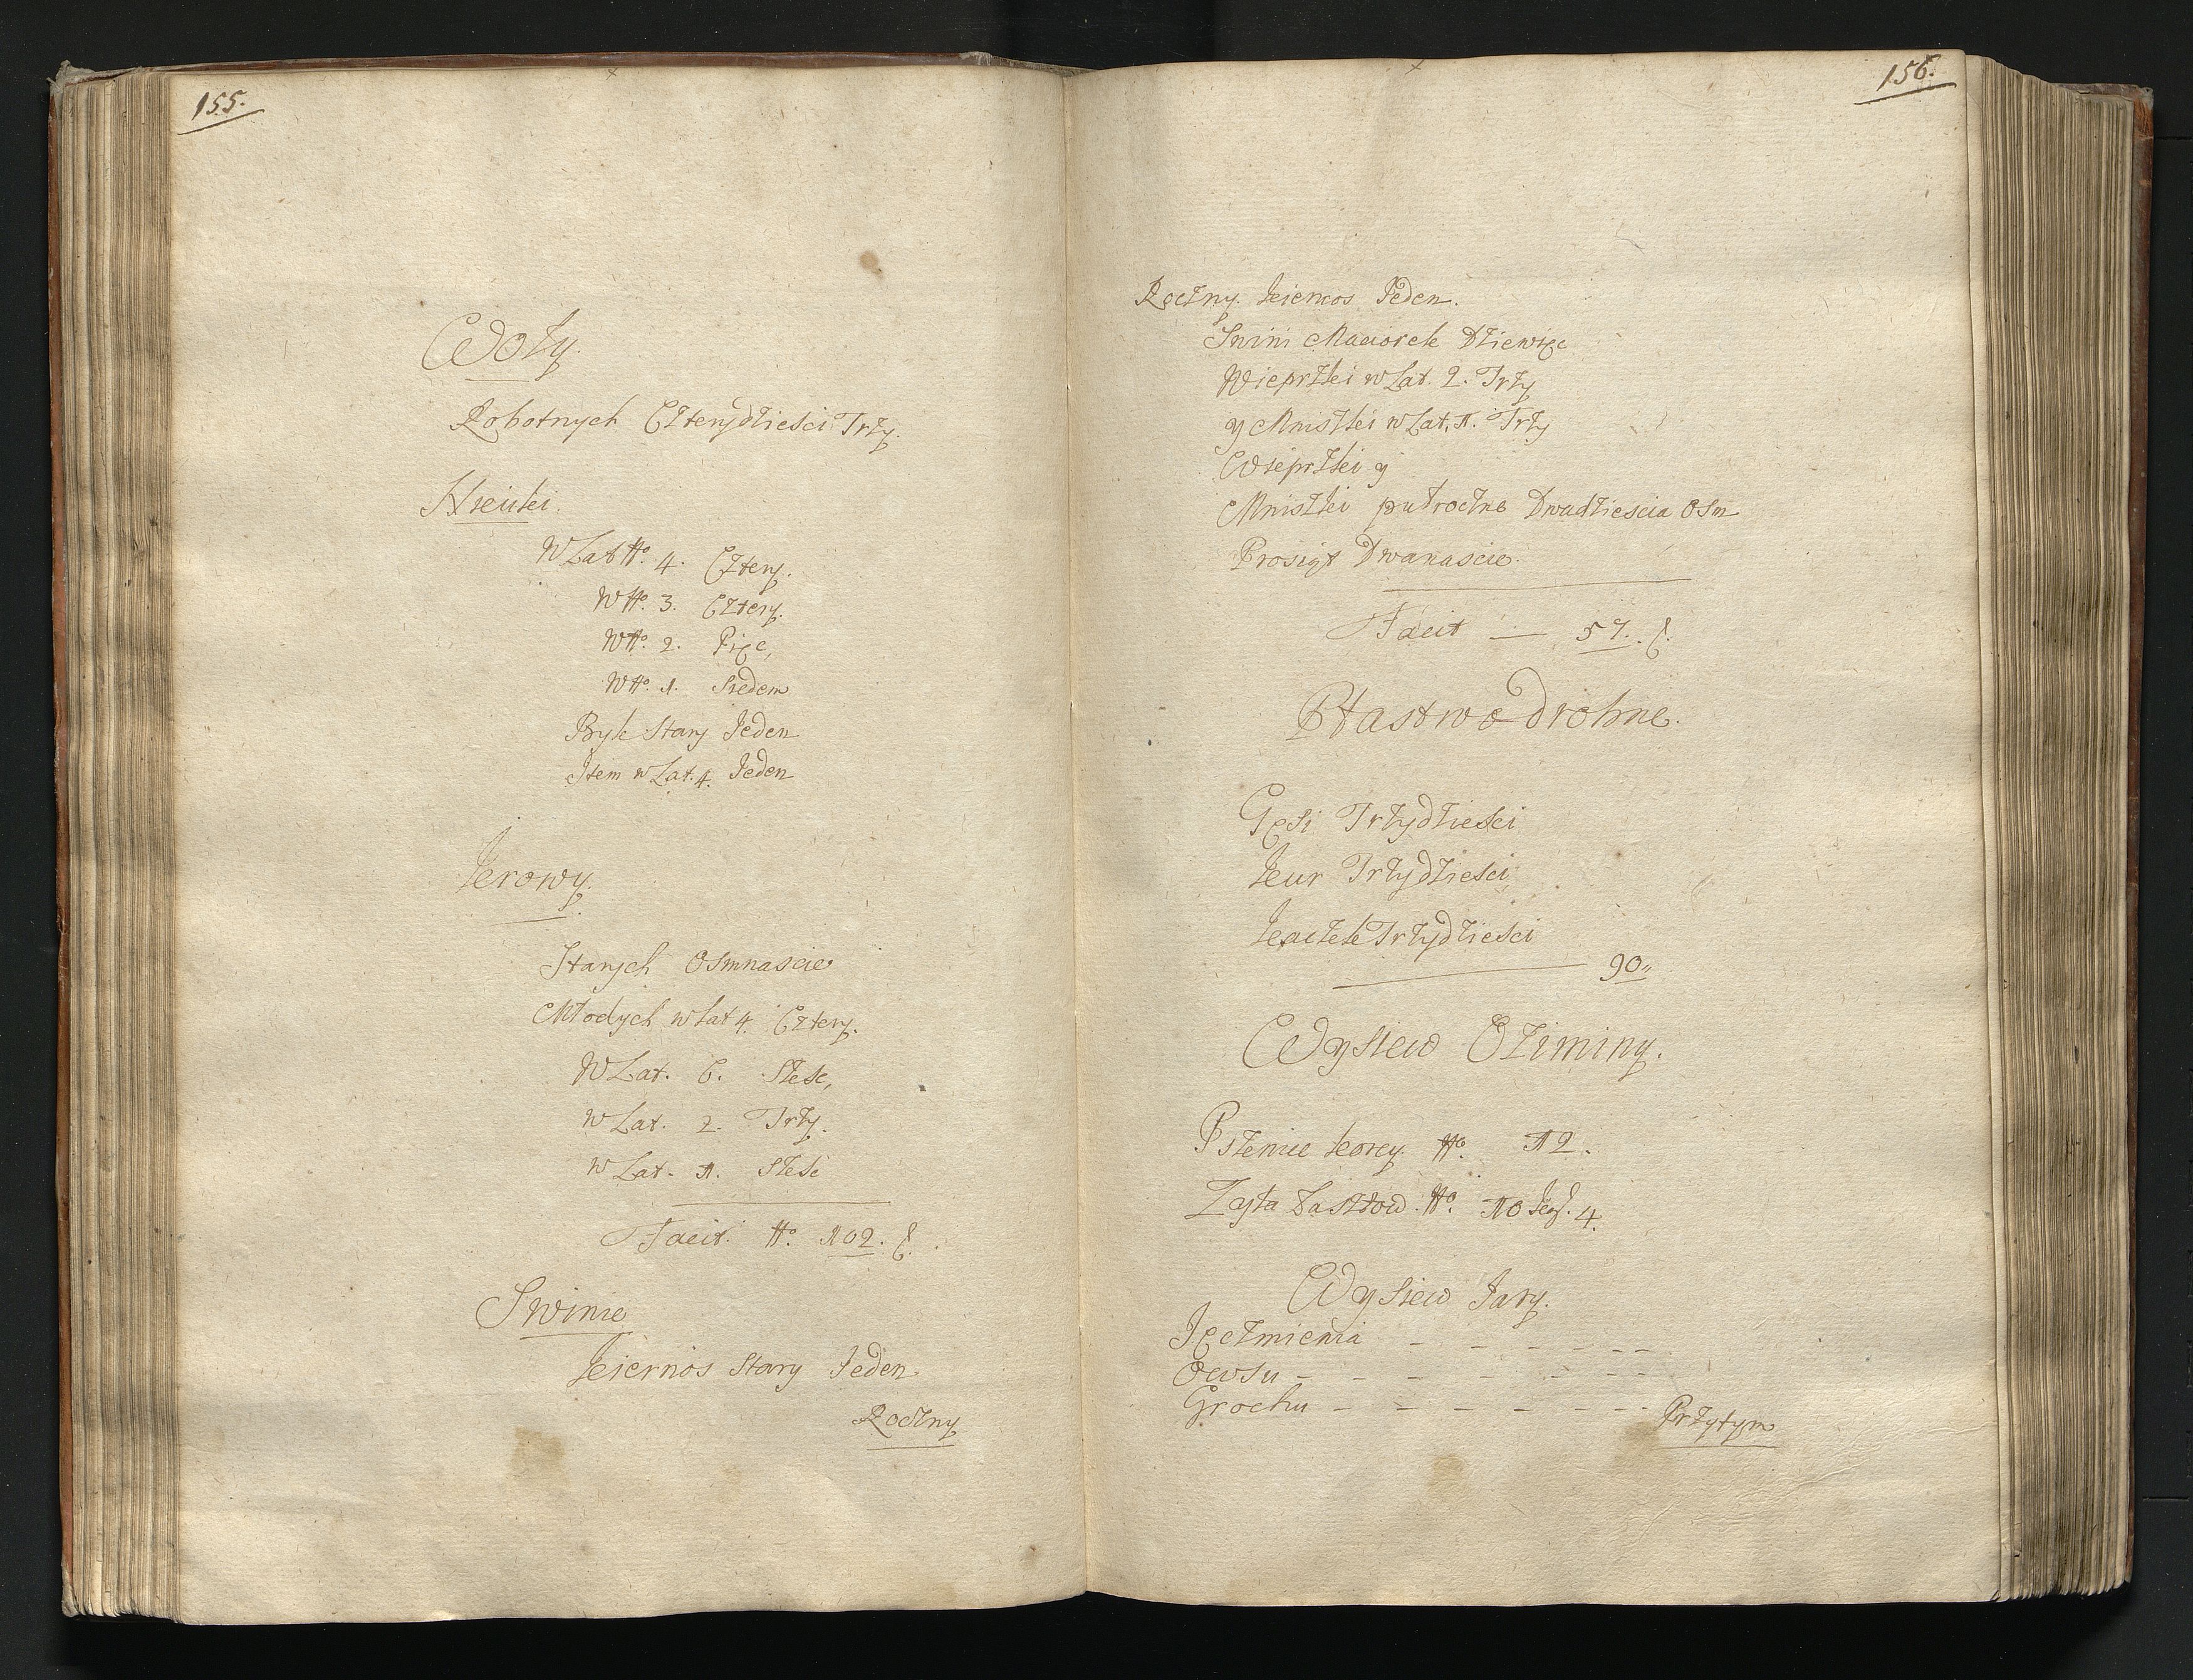 155.
Woły.
Robotnych Czterydzieści Trzy.
W Lat No. 4. Cztery.
W No. 3. Cztery.
W No. 2. Pięc,
W No. 1. Siedem
Byk Stary Jeden
Item w Lat. 4. Jeden
Krowy.
Starych Osmnascie
Młodych w Lat 4. Cztery.
W Lat. 6. Szesc,
W Lat. 2. Trzy.
W Lat. 1. Szesc
Facit. No. 102.
Swinie
Kiernos Stary Jeden
Roczny
156.
Roczny. kiernos Jeden.
Swini Maciorek Dziewięc
Wieprzki w Lat. 2. Trzy
y Mniszki w Lat. 1. Trzy
Wieprzki y
Mniszki pułroczne Dwadziescia Osm
Prosiąt Dwanascie.
Facit — 57.
Ptastwo drobne.
Gęsi Trzydziesci
Kur Trzydziesci
Kaczek Trzydziesci
90"
Wysiew Oziminy.
Pszenice korcy No. 12.
Zyta Zasztow. No. 10 4.
Wysiew Jary.
Jęczmienia - - - - - -
Owsu - - - - - - - -
Grochu - - - - - - -
Przytym